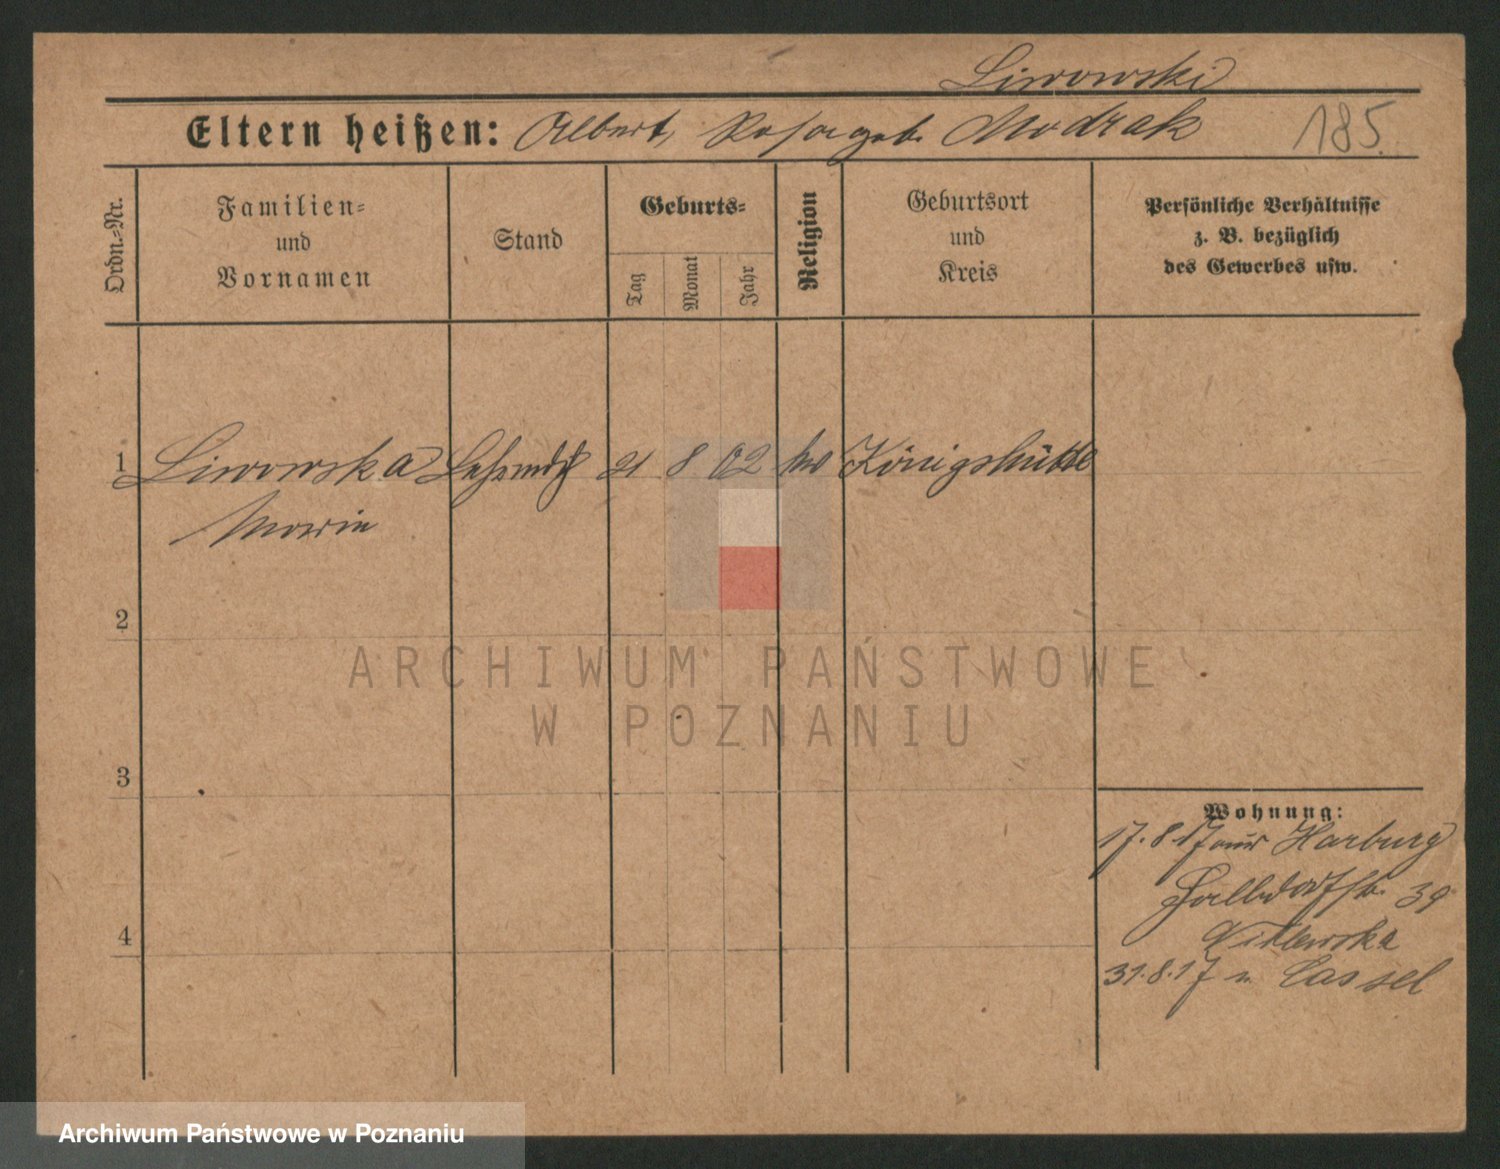 Liwowski
Eltern heißen: Albert, Rosa geb. Modrak
185.
Ordn.-Nr.
Familien-
und
Vornamen
Stand
Geburts-
Tag
Monat
Jahr
Religion
Geburtsort
und
Kreis
Persönliche Verhältnisse
z. B. bezüglich
des Gewerbes usw.
1 Liwowska 21 8 02 Königshütte
Maria
2
3
4
Wohnung:
17.8.17 aus Harburg
39
31.8.17 n. Cassel
ARCHIWUM PAŃSTWOWE
W POZNANIU
Archiwum Państwowe w Poznaniu